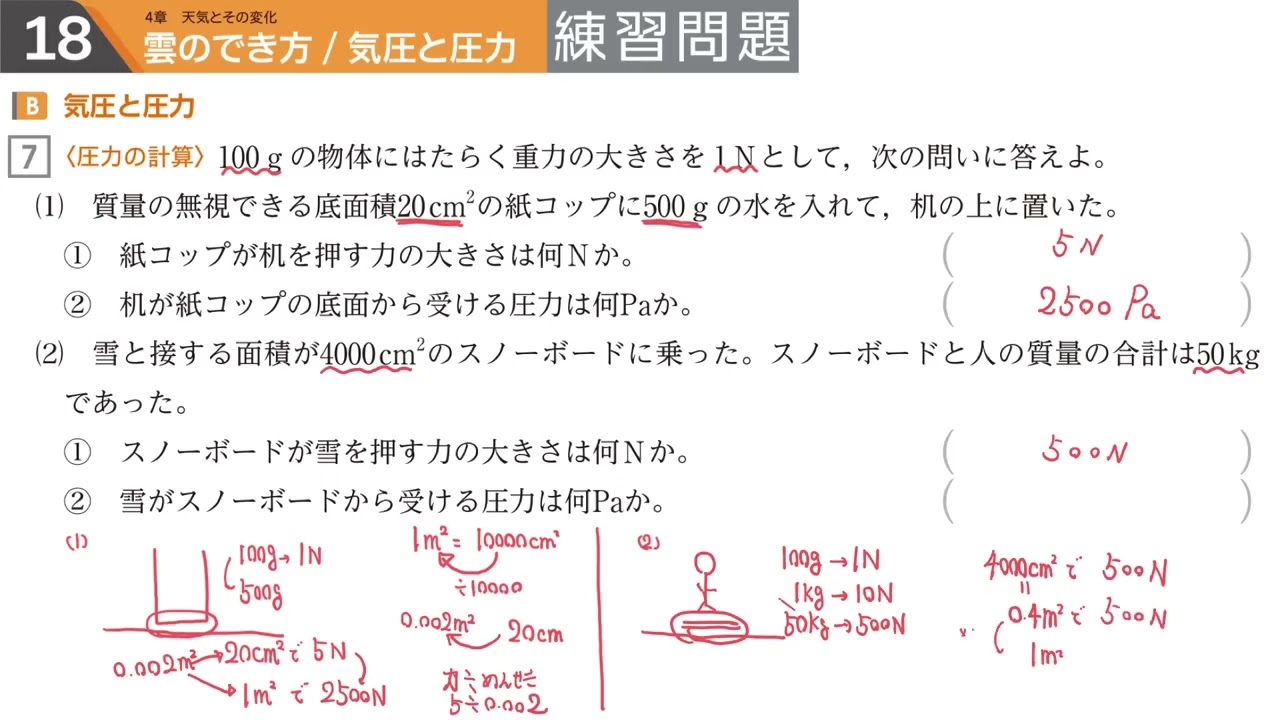 18
4章 天気とその変化
雲のでき方 / 気圧と圧力
練習問題
B 気圧と圧力
7 〈圧力の計算〉100gの物体にはたらく重力の大きさを1Nとして，次の問いに答えよ。
⑴ 質量の無視できる底面積20cm²の紙コップに500gの水を入れて，机の上に置いた。
① 紙コップが机を押す力の大きさは何Nか。
( 5N )
② 机が紙コップの底面から受ける圧力は何Paか。
( 2500 Pa )
⑵ 雪と接する面積が4000cm²のスノーボードに乗った。スノーボードと人の質量の合計は50kg
であった。
① スノーボードが雪を押す力の大きさは何Nか。
( 500N )
② 雪がスノーボードから受ける圧力は何Paか。
( )
(1)
100g→1N
500g
0.002m²
20cm²で 5N
1m²で 2500N
1m² = 10000cm²
÷10000
0.002m²
20cm
力÷めんせき
5÷0.002
(2)
100g→1N
1kg→10N
50kg→500N
4000cm²で 500N
=
0.4m²で 500N
1m²